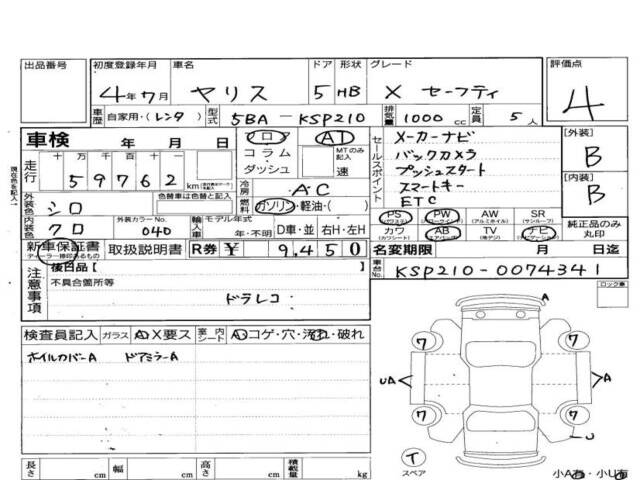 出品番号 初度登録年月 車名 ドア 形状 グレード 評価点
4年7月 ヤリス 5 HB X セーフティ 4
車歴 自家用・(レンタ) 型式 5BA-KSP210 排気量 1000cc 定員 5人
車検 年 月 日
フロア AT
コラム・ダッシュ
MTのみ記入 速
セールスポイント
メーカーナビ
バックカメラ
プッシュスタート
スマートキー
ETC
[外装] B
[内装] B
現在色を記入→
走行 十万千百十
59762km
冷房 AC
外装色 シロ 色替車は色替と記入
燃料 ガソリン・軽油・( )
内装色 クロ 外装カラーNo. 040
輸入車 モデル年式 年・不明 D車・並 右H・左H
PS (パワステ) PW (パワーウインド) AW (アルミホイル) SR (サンルーフ)
カワ (カワシート) AB (エアバッグ) TV (地デジ) ナビ (ナビゲーション)
純正品のみ丸印
新車保証書 ディーラー捺印あるもの 取扱説明書 R券 ¥9,450
名変期限 月 日迄
車台No. KSP210-0074341
注意事項
後日品【 】
不具合箇所等
ドラレコ
ロック車
検査員記入 ガラス A X要ス 室内シート A コゲ・穴・汚れ・破れ
ホイルカバーA ドアミラーA
A
7 7
UA A
7 7
U
イ
スペア
長さ cm 幅 cm 高さ cm 積載量 kg
小A有・小U有